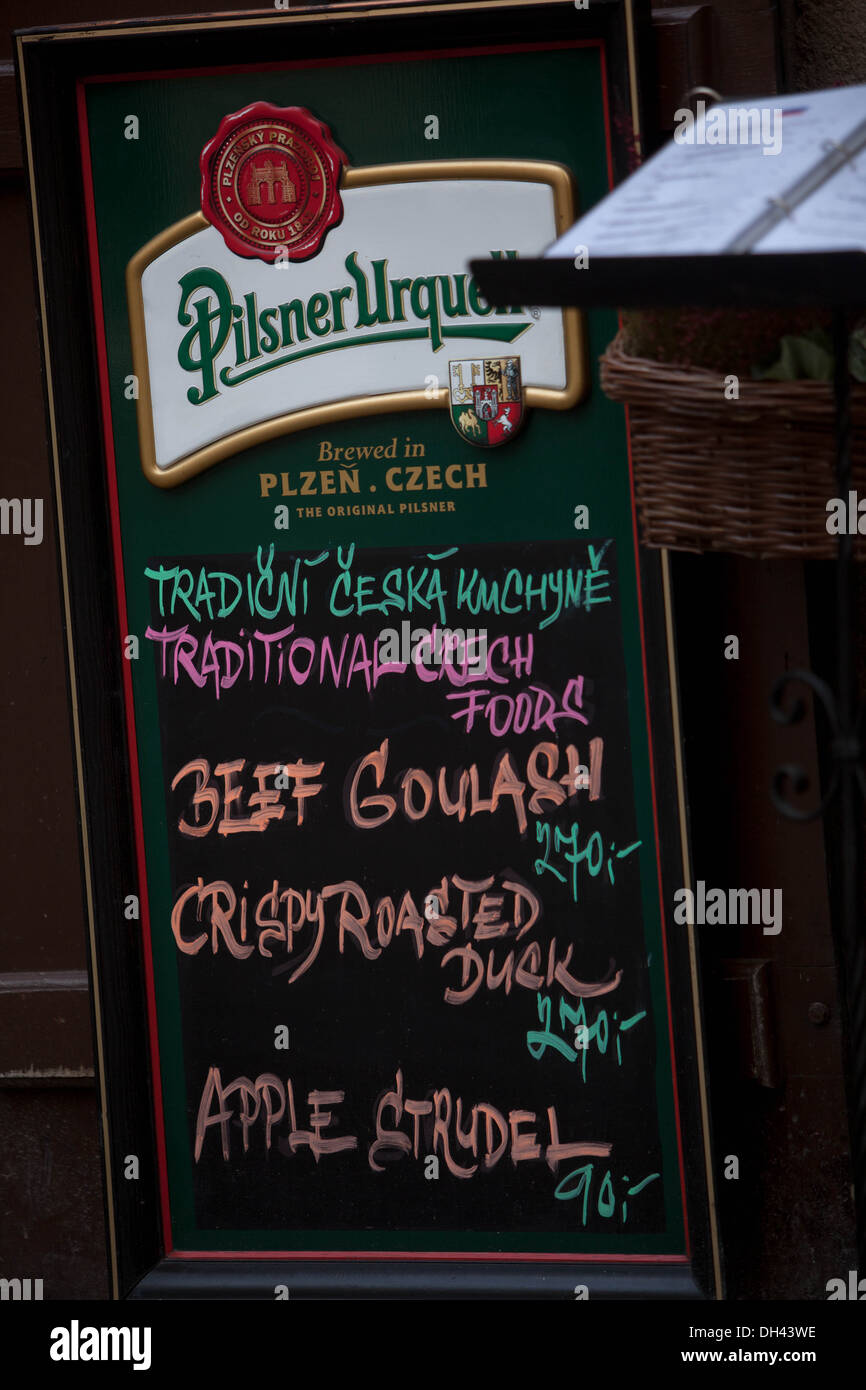 PLZEŇSKÝ PRAZDROJ
OD ROKU 18
Pilsner Urquell
Brewed in
PLZEŇ . CZECH
THE ORIGINAL PILSNER
TRADIČNÍ ČESKÁ KUCHYNĚ
TRADITIONAL CZECH
FOODS
BEEF GOULASH
270,-
CRISPY ROASTED
DUCK
270,-
APPLE STRUDEL
90,-
alamy
Image ID: DH43WE
www.alamy.com